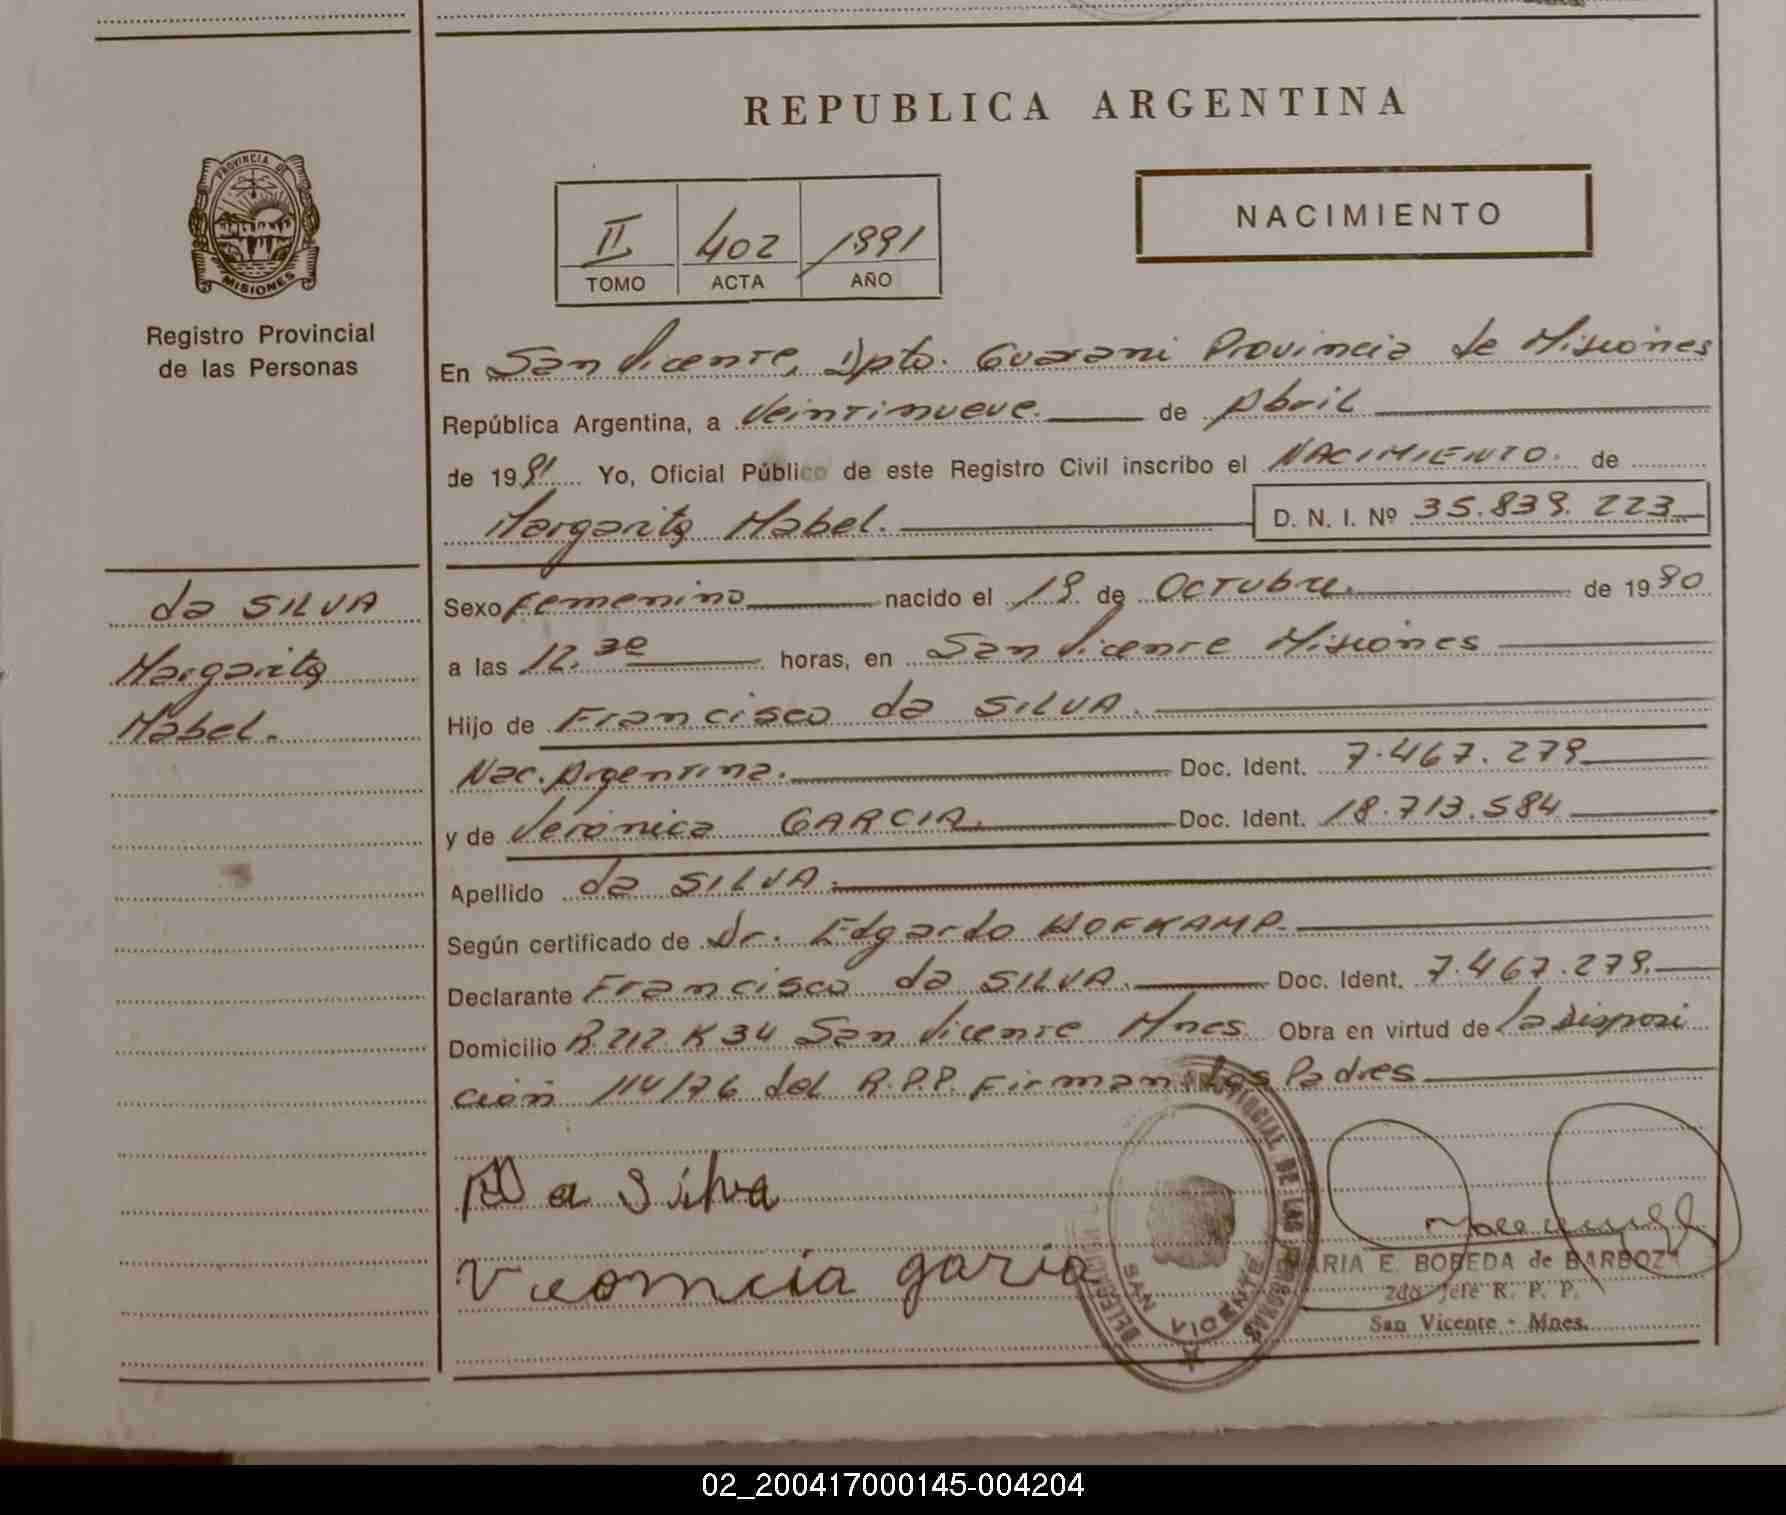 REPUBLICA ARGENTINA
PROVINCIA DE
MISIONES
Registro Provincial
de las Personas
II 402 1991
TOMO ACTA AÑO
NACIMIENTO
En San Vicente, Dpto. Guarani Provincia de Misiones
República Argentina, a Veintinueve. de Abril
de 1991. Yo, Oficial Público de este Registro Civil inscribo el NACIMIENTO. de
Margarita Mabel. D. N. I. Nº 35.839.223
da SILVA
Margarita
Mabel.
Sexo femenino nacido el 19 de Octubre. de 1990
a las 12.30 horas, en San Vicente Misiones
Hijo de Francisco da SILVA.
Nac. Argentina. Doc. Ident. 7.467.279
y de Verónica GARCIA. Doc. Ident. 18.713.584
Apellido da SILVA.
Según certificado de Dr. Edgardo HOFKAMP.
Declarante Francisco da SILVA. Doc. Ident. 7.467.279.
Domicilio R.212 K 34 San Vicente Mnes Obra en virtud de la disposi
ción 114/76 del R.P.P. Firman Los Padres
Da Silva
Veomcia garia
PROVINCIAL DE LAS PERSONAS
SAN VICENTE
MARIA E. BOBEDA de BARBOZA
2do Jefe R. P. P.
San Vicente - Mnes.
02_200417000145-004204